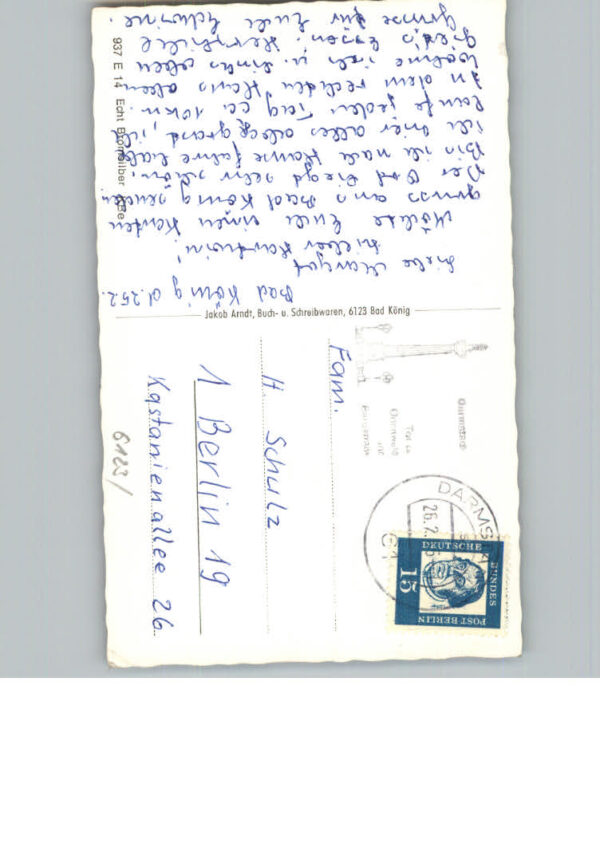 Bad König d. 25.2.
Liebe Margot
lieber Hartwin!
Möchte Euch einen Karten
gruss aus Bad König senden
Der Ort liegt sehr schön.
Bin ich nach Hause fahre habe
ich hier alles abgegrast, ich
laufe jeden Tag ca. 10 km.
In dem rechten Haus oben
wohne ich u. links oben
gibt's Essen. Herzliche
Grüsse für Euch Edwine.
937 E 14 Echt Bromsilber
Jakob Arndt, Buch- u. Schreibwaren, 6123 Bad König
Fam.
H. Schulz
1 Berlin 19
Kastanienallee 26.
6123/
Darmstadt
Tor zu
Odenwald
und
Bergstraße
DARMS
26.2.
61
DEUTSCHE BUNDES
POST BERLIN
15